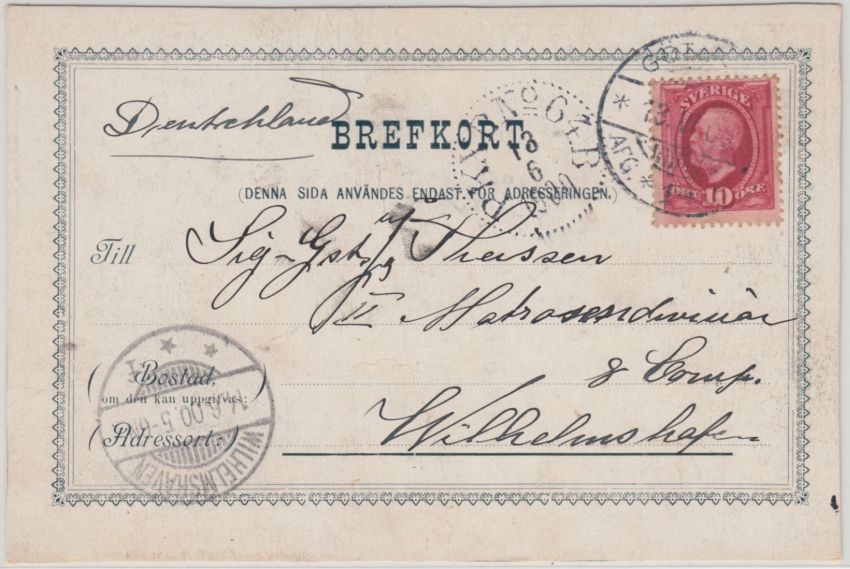 Deutschland
BREFKORT
(DENNA SIDA ANVÄNDES ENDAST FÖR ADRESSERINGEN.)
No 6 B
13
6
1900
GÖT
13
AFG.
SVERIGE
ÖRE 10 ÖRE
Till
Sig-Gst
II Matrosendivision
8 Comp.
Wilhelmshafen
(Bostad,
om den kan uppgifvas:)
(Adressort:)
WILHELMSHAVEN
14.6.00.5-6